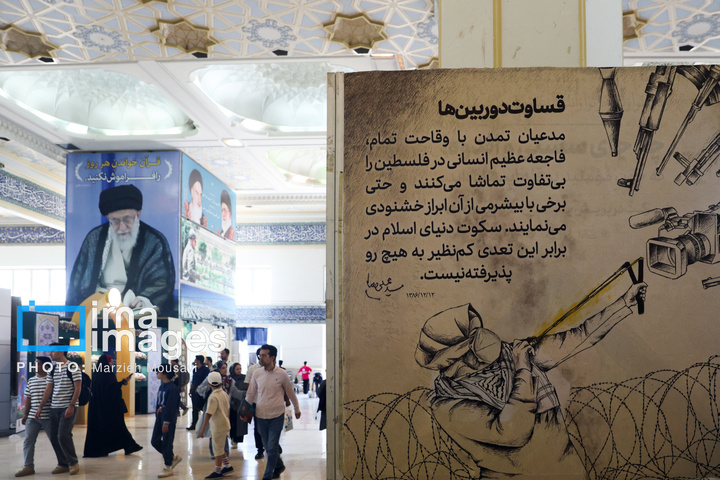 قساوت دوربین‌ها
مدعیان تمدن با وقاحت تمام،
فاجعه عظیم انسانی در فلسطین را
بی‌تفاوت تماشا می‌کنند و حتی
برخی با بیشرمی از آن ابراز خشنودی
می‌نمایند. سکوت دنیای اسلام در
برابر این تعدی کم‌نظیر به هیچ رو
پذیرفته نیست.
۱۳۸۶/۱۲/۱۲
قرآن خواندن هر روز
را فراموش نکنید
ima
images
PHOTO: Marzieh Mousavi